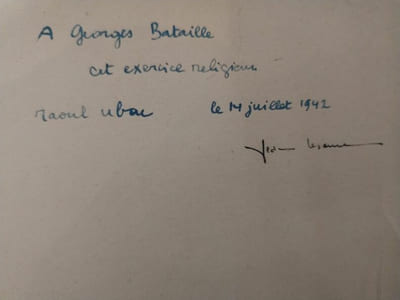 A Georges Bataille
cet exercice religieux
raoul ubac le 14 juillet 1942
Jean Lescure